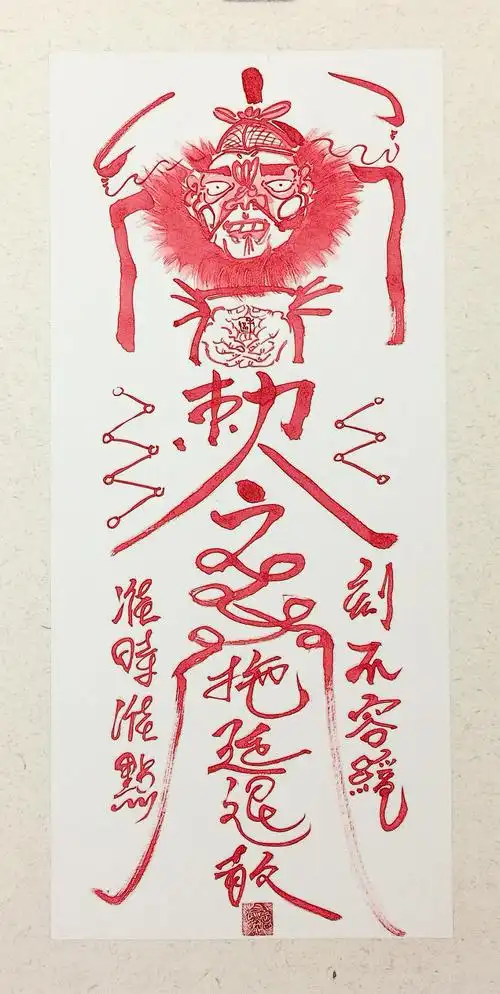 勅令
刻不容緩
拖延退散
准時准點